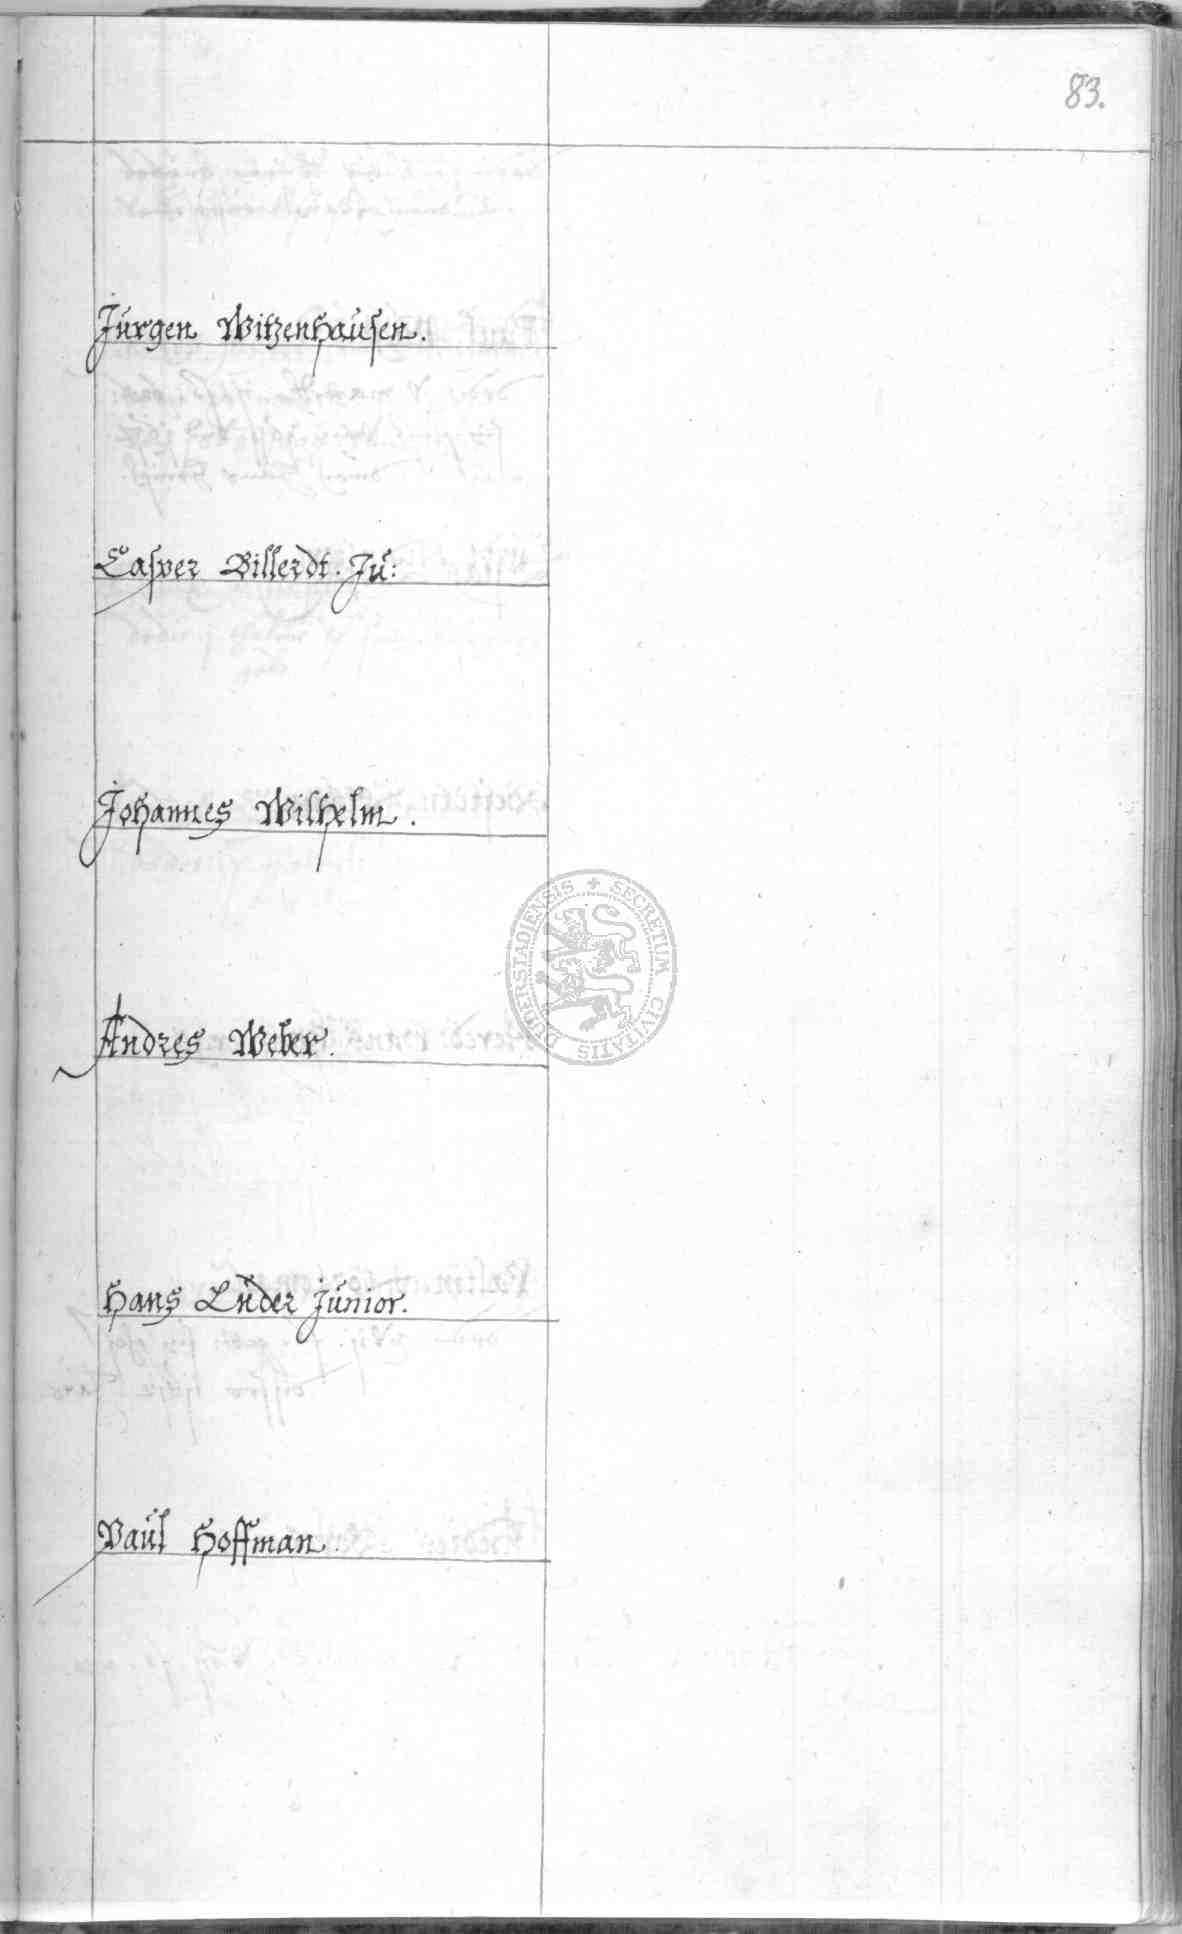 83.
Jürgen Witzenhausen.
Casper Billerdt. Ju:
Johannes Wilhelm.
Andres Weber.
Hans Lüder junior.
Paul Hoffman.
SECRETUM CIVITATIS DUDERSTADIENSIS